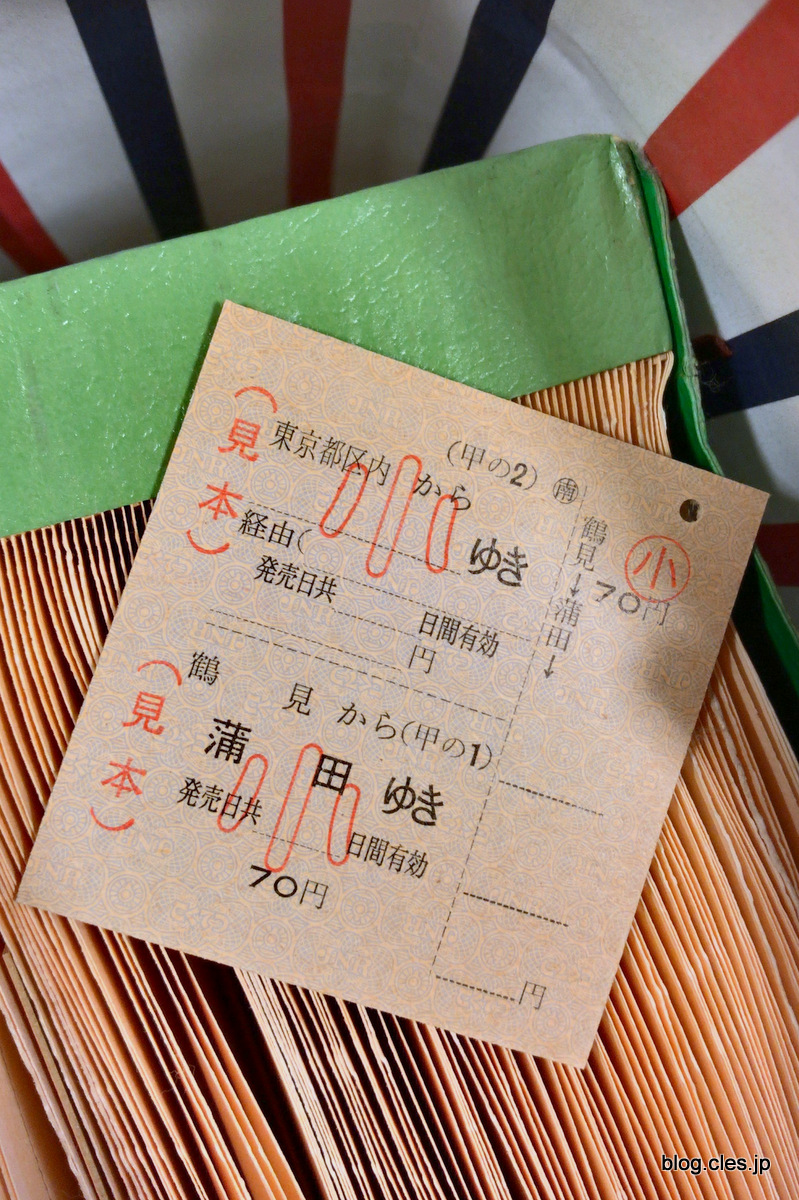 (見本)
東京都区内 から (甲の2) ㊞南
経由( ゆき
発売日共 日間有効
円
鶴見 から(甲の1)
蒲田 ゆき
(見本)
発売日共 日間有効
70円
鶴見→蒲田→
小
70円
円
blog.cles.jp